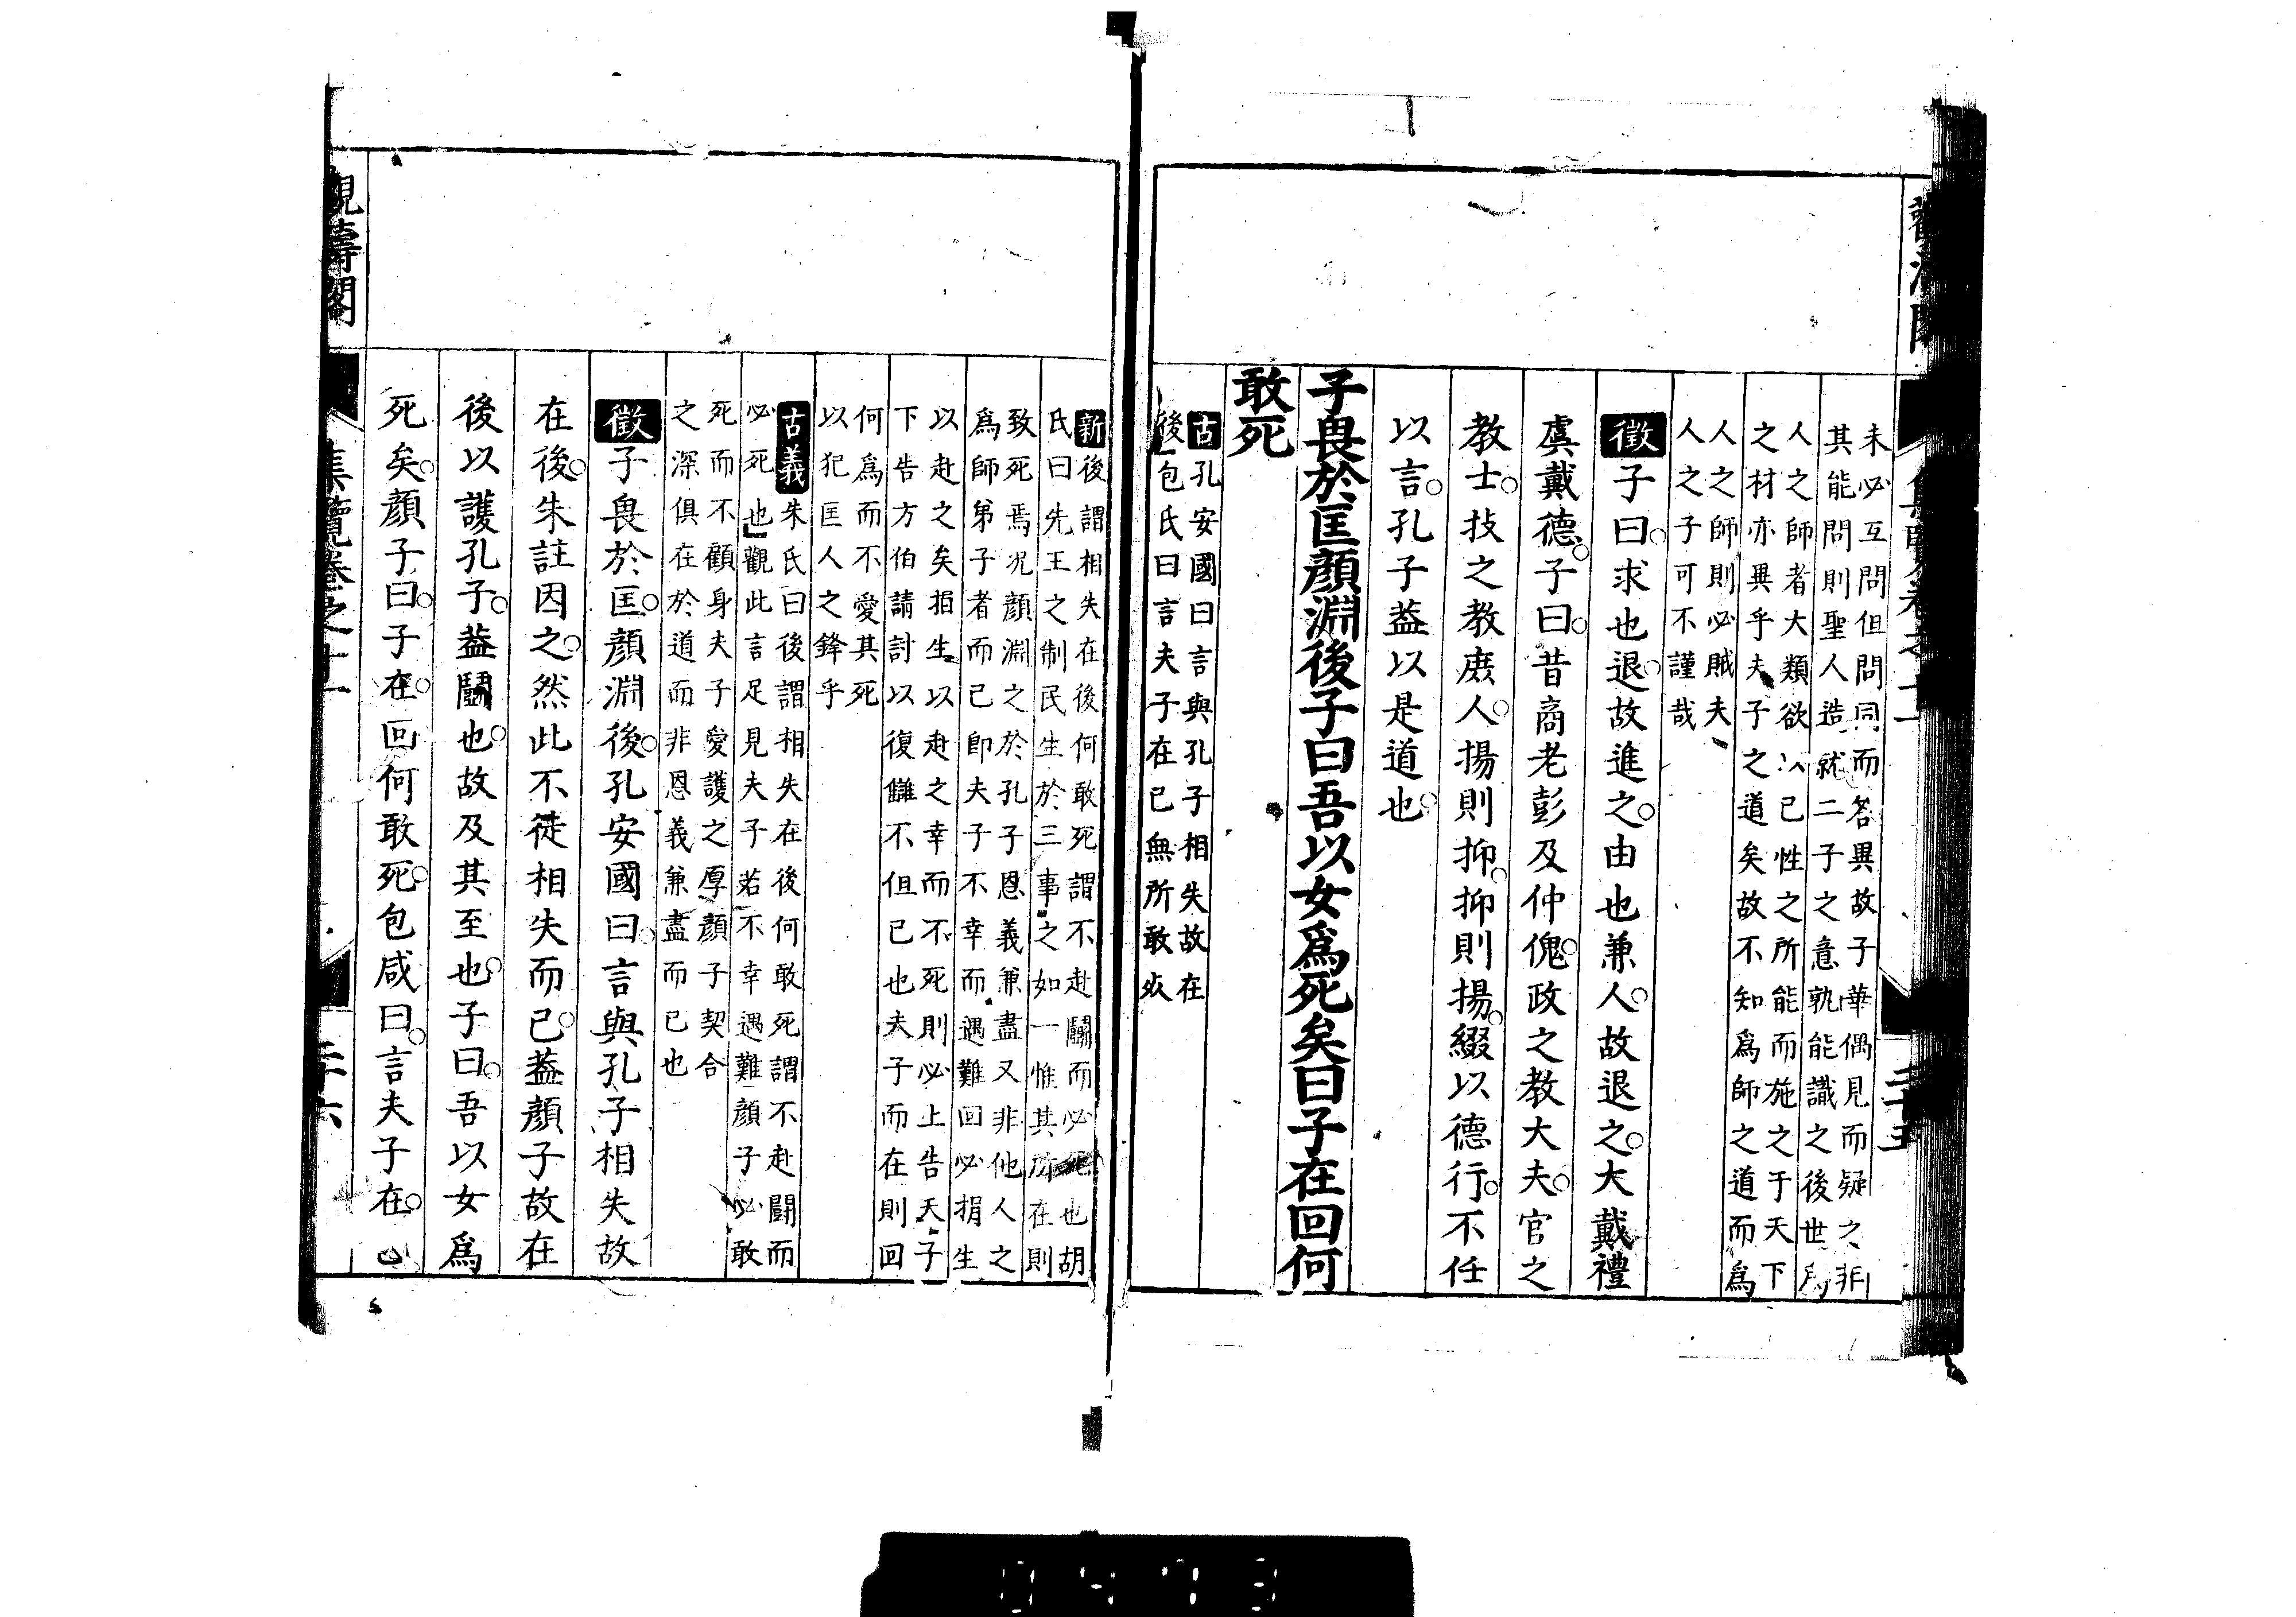 未必互問但問同而答異故子華偶見而疑之非
其能問則聖人造就二子之意孰能識之後世爲
人之師者大類欲以己性之所能而施之于天下
之材亦異乎夫子之道矣故不知爲師之道而爲
人之師則必賊夫
人之子可不謹哉
徵子曰求也退故進之由也兼人故退之大戴禮
虞戴德子曰昔商老彭及仲傀政之教大夫官之
教士技之教庶人揚則抑抑則揚綴以德行不任
以言孔子葢以是道也
子畏於匡顏淵後子曰吾以女爲死矣曰子在回何
敢死
古孔安國曰言與孔子相失故在
後包氏曰言夫子在已無所敢死
新後謂相失在後何敢死謂不赴鬭而必死也胡
氏曰先王之制民生於三事之如一惟其所在則
致死焉况顏淵之於孔子恩義兼盡又非他人之
爲師弟子者而已即夫子不幸而遇難回必捐生
以赴之矣捐生以赴之幸而不死則必上告天子
下告方伯請討以復讎不但已也夫子而在則回
何爲而不愛其死
以犯匡人之鋒乎
古義朱氏曰後謂相失在後何敢死謂不赴鬭而
必死也觀此言足見夫子若不幸遇難顏子必敢
死而不顧身夫子愛護之厚顏子契合
之深俱在於道而非恩義兼盡而已也
徵子畏於匡顏淵後孔安國曰言與孔子相失故
在後朱註因之然此不徒相失而已葢顏子故在
後以護孔子葢鬭也故及其至也子曰吾以女爲
死矣顏子曰子在回何敢死包咸曰言夫子在已
集覽卷之十一
二十六